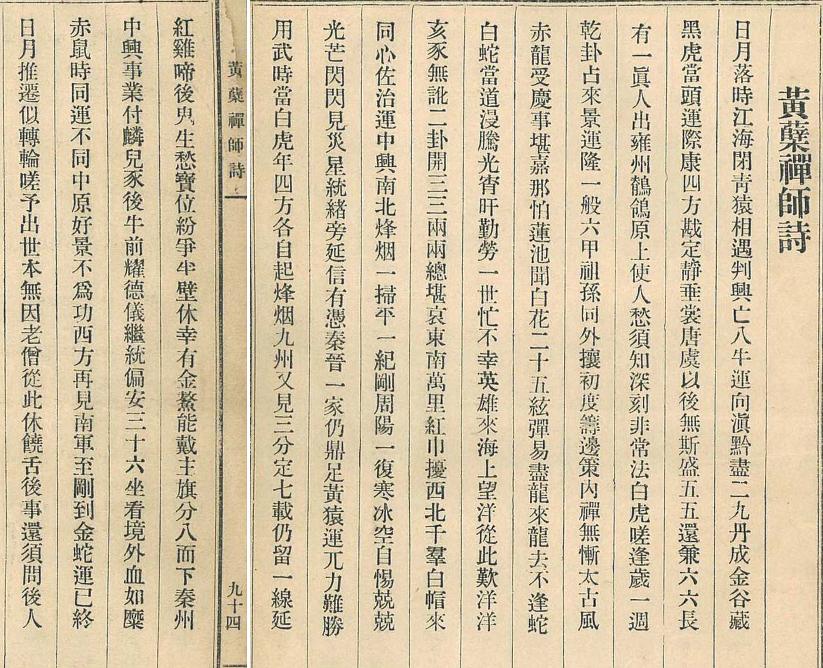 黃蘗禪師詩
日月落時江海閉靑猿相遇判興亡八牛運向滇黔盡二九丹成金谷藏
黑虎當頭運際康四方戡定靜垂裳唐虞以後無斯盛五五還兼六六長
有一眞人出雍州鶺鴒原上使人愁須知深刻非常法白虎嗟逢歲一週
乾卦占來景運隆一般六甲祖孫同外攘初度籌邊策內禪無慚太古風
赤龍受慶事堪嘉那怕蓮池聞白花二十五絃彈易盡龍來龍去不逢蛇
白蛇當道漫騰光宵旰勤勞一世忙不幸英雄來海上望洋從此歎洋洋
亥豕無訛二卦開三三兩兩總堪哀東南萬里紅巾擾西北千羣白帽來
同心佐治運中興南北烽烟一掃平一紀剛周陽一復寒冰空自惕兢兢
光芒閃閃見災星統緒旁延信有憑秦晉一家仍鼎足黃猿運兀力難勝
用武時當白虎年四方各自起烽烟九州又見三分定七載仍留一線延
黃蘗禪師詩
九十四
紅雞啼後鬼生愁寶位紛爭半壁休幸有金鰲能戴主旗分八面下秦州
中興事業付麟兒豕後牛前耀德儀繼統偏安三十六坐看境外血如糜
赤鼠時同運不同中原好景不爲功西方再見南軍至剛到金蛇運已終
日月推遷似轉輪嗟予出世本無因老僧從此休饒舌後事還須問後人